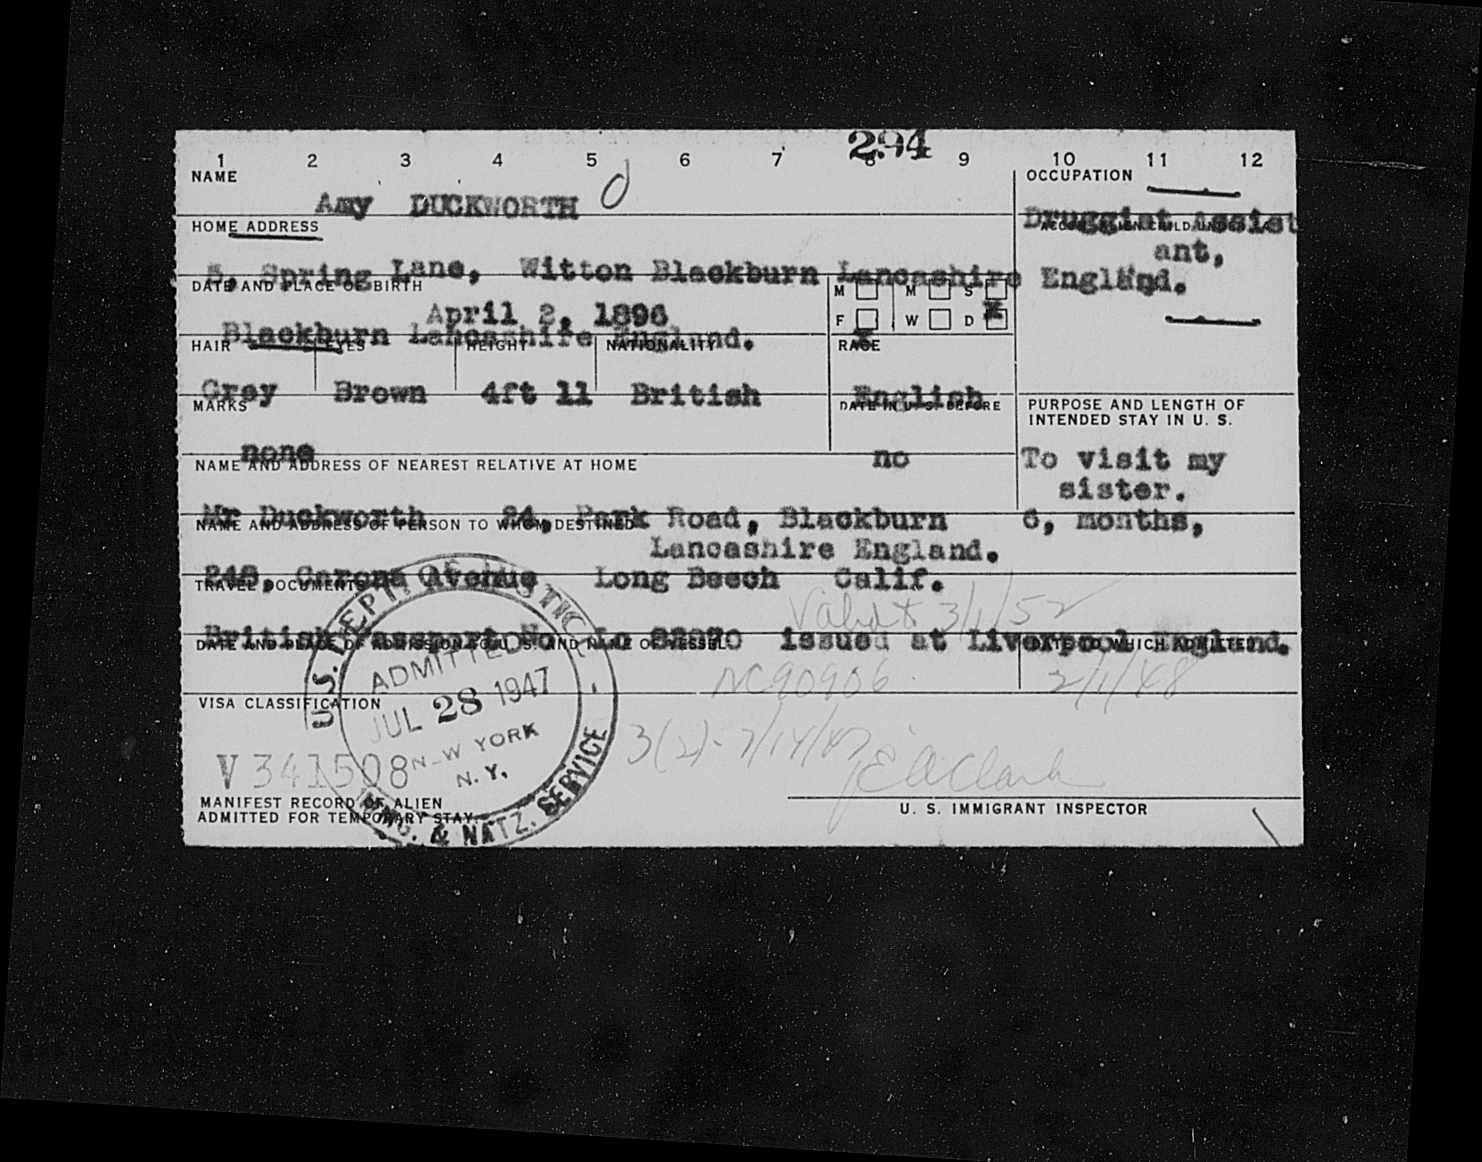 294
1 2 3 4 5 6 7 8 9 10 11 12
NAME
OCCUPATION
Amy DUCKWORTH
Druggist Assist
HOME ADDRESS
ant,
5, Spring Lane, Witton Blackburn Lancashire England.
DATE AND PLACE OF BIRTH
M M S
April 2, 1896
F W D X
Blackburn Lancashire England.
X
HAIR EYES HEIGHT NATIONALITY RACE
Grey Brown 4ft 11 British English
MARKS
DATE IN U. S. BEFORE
PURPOSE AND LENGTH OF
INTENDED STAY IN U. S.
none no To visit my
NAME AND ADDRESS OF NEAREST RELATIVE AT HOME
sister.
Mr Duckworth 24, Park Road, Blackburn 6, months,
NAME AND ADDRESS OF PERSON TO WHOM DESTINED
Lancashire England.
Corona Avenue Long Beech Calif.
TRAVEL DOCUMENTS
Valid to 3/1/52
British Passport No. issued at Liverpool England.
DATE AND PLACE OF ADMISSION TO U. S. AND NAME OF VESSEL
DATE TO WHICH ADMITTED
NC90906 2/1/48
VISA CLASSIFICATION
3(2)-7/14/47
V341508
U. S. DEPT. OF JUSTICE
ADMITTED
JUL 28 1947
NEW YORK
N. Y.
IMMG. & NATZ. SERVICE
MANIFEST RECORD OF ALIEN
ADMITTED FOR TEMPORARY STAY.
U. S. IMMIGRANT INSPECTOR